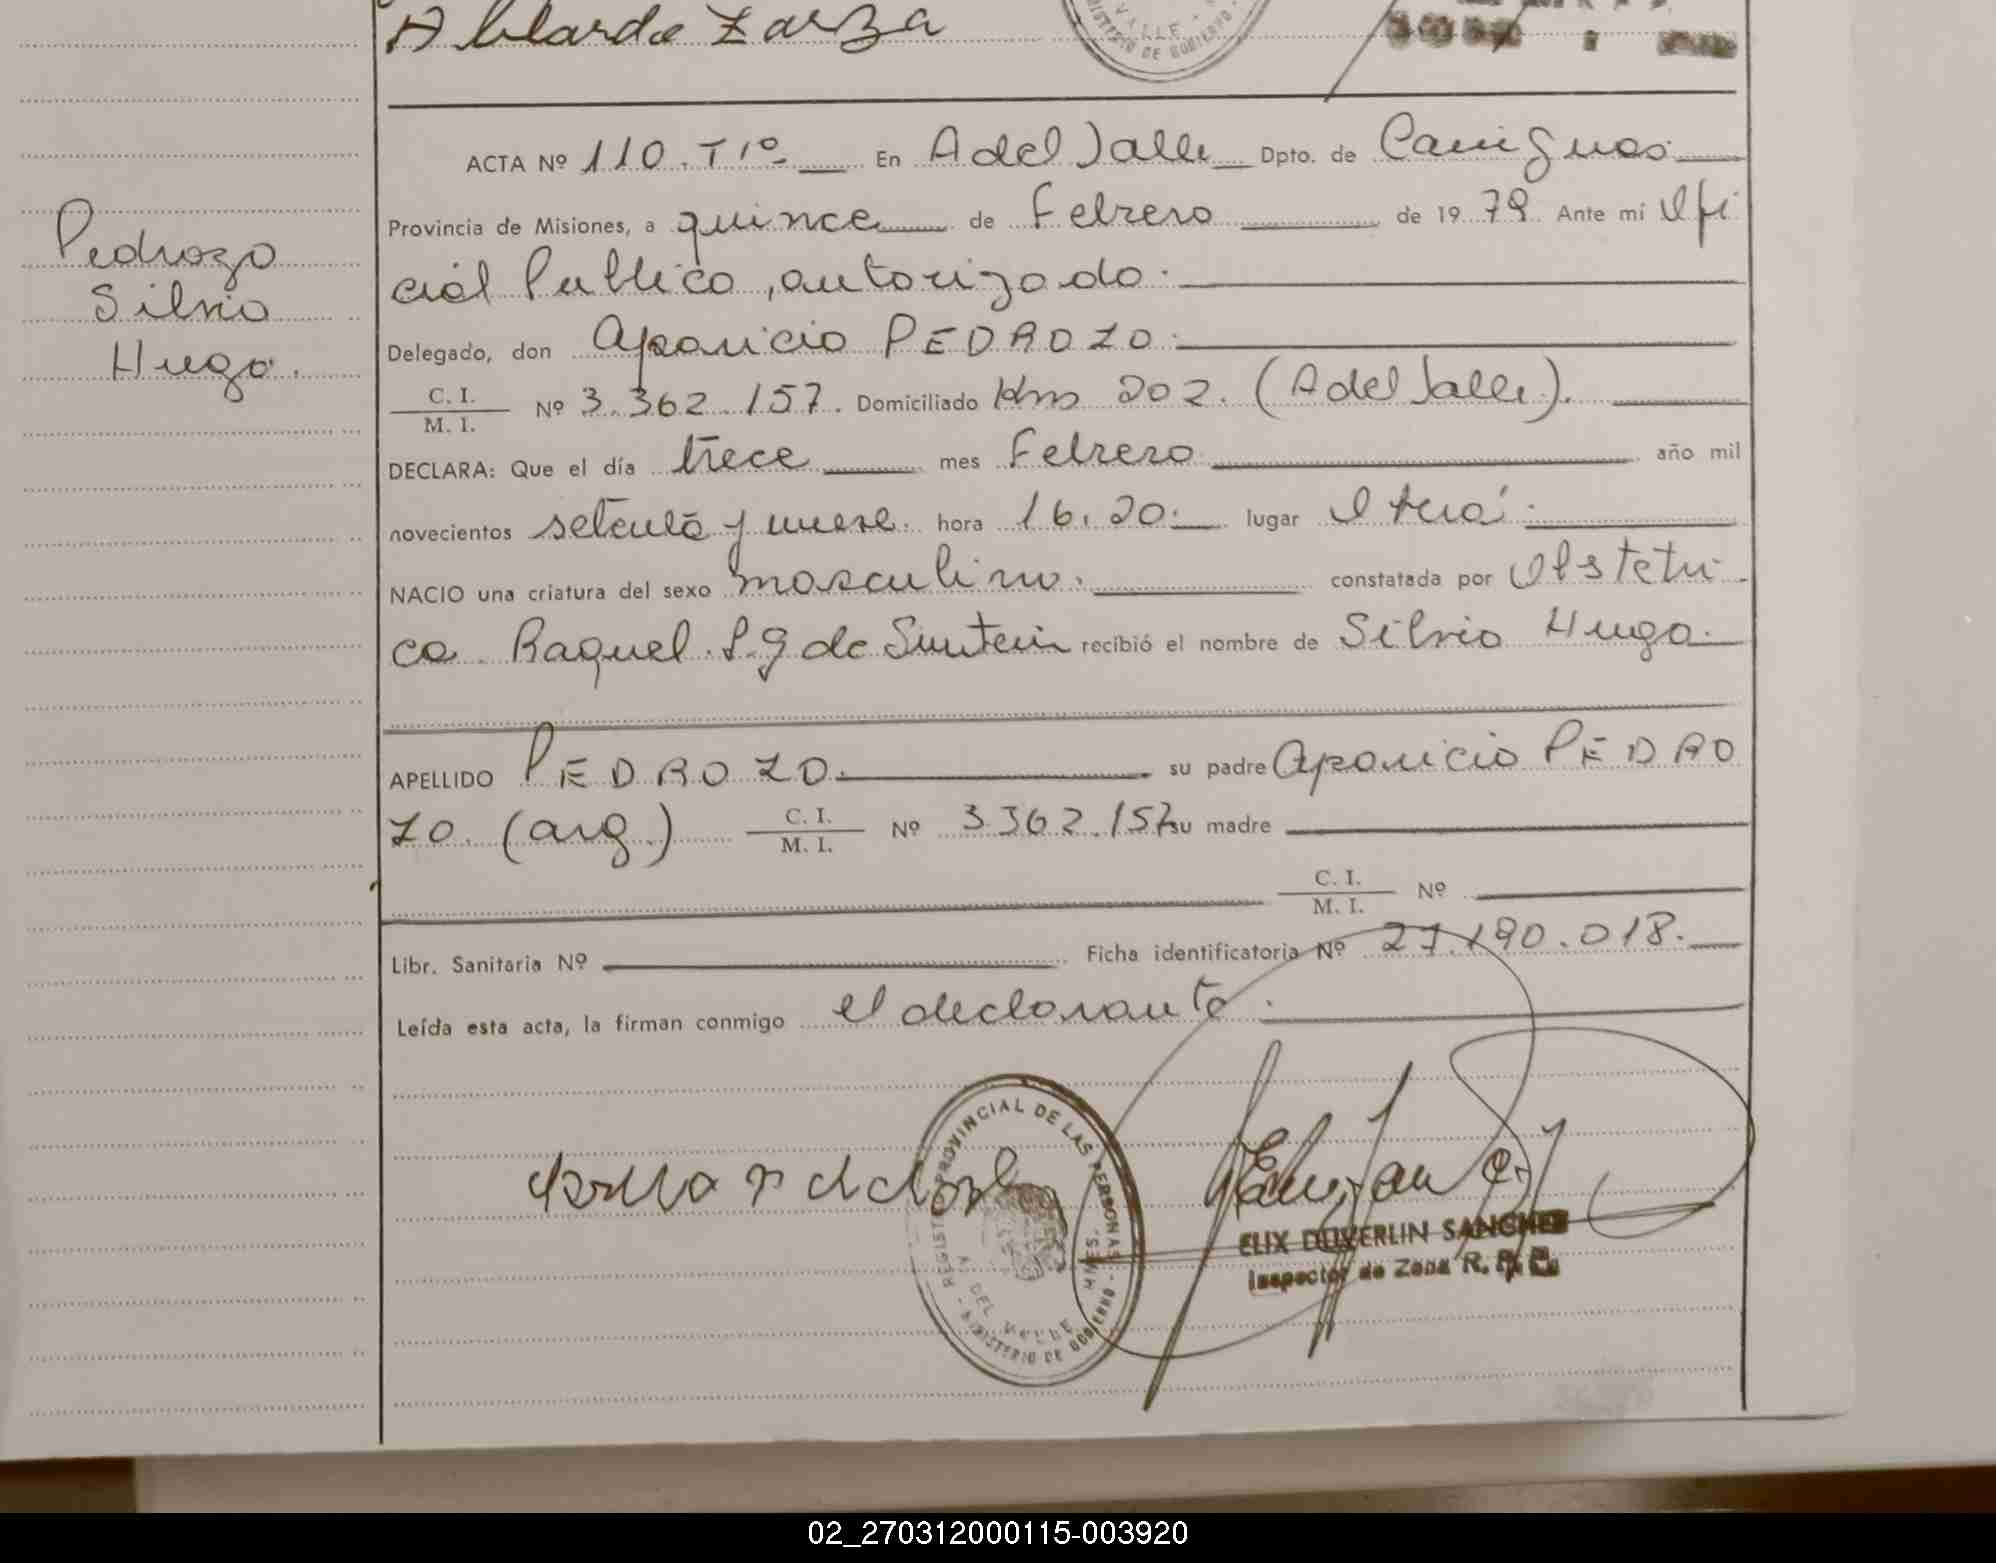 Abelardo Zarza
VALLE
MINISTERIO DE GOBIERNO
ACTA Nº 110. T 1º. En A del Valle Dpto. de Cainguas
Provincia de Misiones, a quince de Febrero de 1979 Ante mí Ofi
cial Publico, autorizado.
Delegado, don Aparicio PEDROZO.
C. I.
M. I. Nº 3.362.157. Domiciliado Km 202. (A del Valle).
DECLARA: Que el día trece mes Febrero año mil
novecientos setenta y nueve. hora 16.20. lugar
NACIO una criatura del sexo masculino. constatada por Obstetri
ca Raquel recibió el nombre de Silvio Hugo.
Pedrozo
Silvio
Hugo.
APELLIDO PEDROZO. su padre Aparicio PEDRO
ZO. (arg.) C. I.
M. I. Nº 3.362.157 su madre
C. I.
M. I. Nº
Libr. Sanitaria Nº Ficha identificatoria Nº 27.190.018.
Leída esta acta, la firman conmigo el declarante.
REGISTRO PROVINCIAL DE LAS PERSONAS
DEL VALLE
MINISTERIO DE GOBIERNO
ELIX DUVERLIN SANCHEZ
Inspector de Zona R. P.
02_270312000115-003920